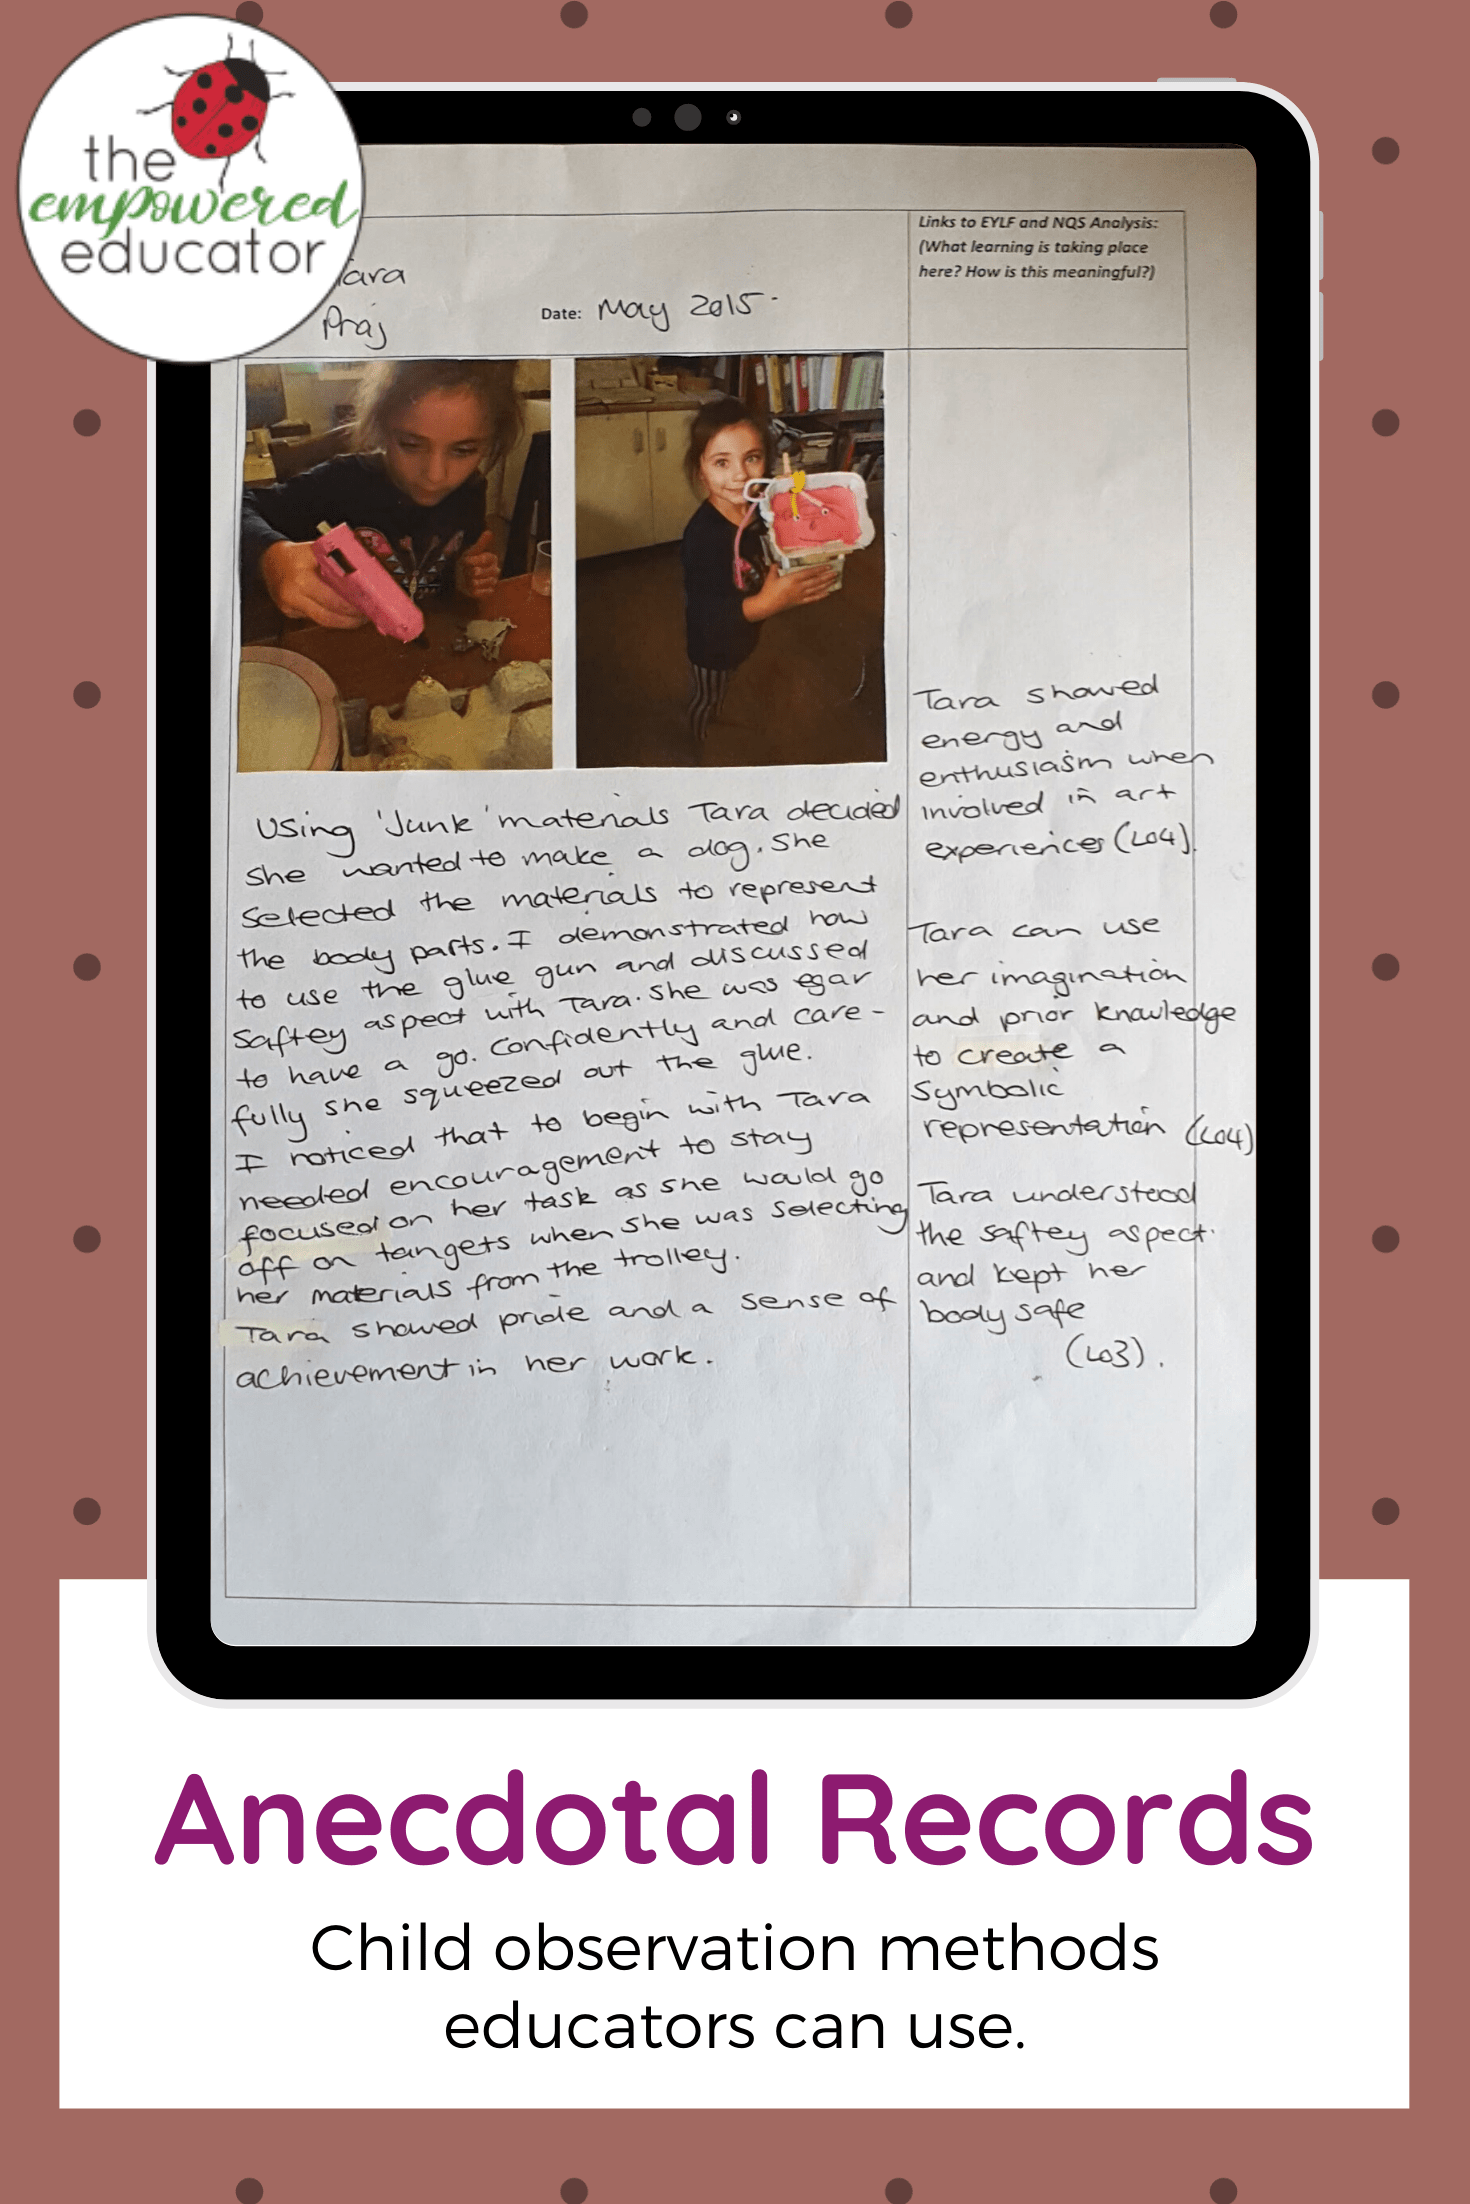 the
empowered
educator
Tara
Praj
Date: May 2015.
Links to EYLF and NQS Analysis:
(What learning is taking place
here? How is this meaningful?)
Using 'Junk' materials Tara decided
she wanted to make a dog. She
selected the materials to represent
the body parts. I demonstrated how
to use the glue gun and discussed
saftey aspect with Tara. She was egar
to have a go. Confidently and care-
fully she squeezed out the glue.
I noticed that to begin with Tara
needed encouragement to stay
focused on her task as she would go
off on tangets when she was selecting
her materials from the trolley.
Tara showed pride and a sense of
achievement in her work.
Tara showed
energy and
enthusiasm when
involved in art
experiences (LO4).
Tara can use
her imagination
and prior knowledge
to create a
Symbolic
representation (LO4)
Tara understood
the saftey aspect
and kept her
body safe
(LO3).
Anecdotal Records
Child observation methods
educators can use.